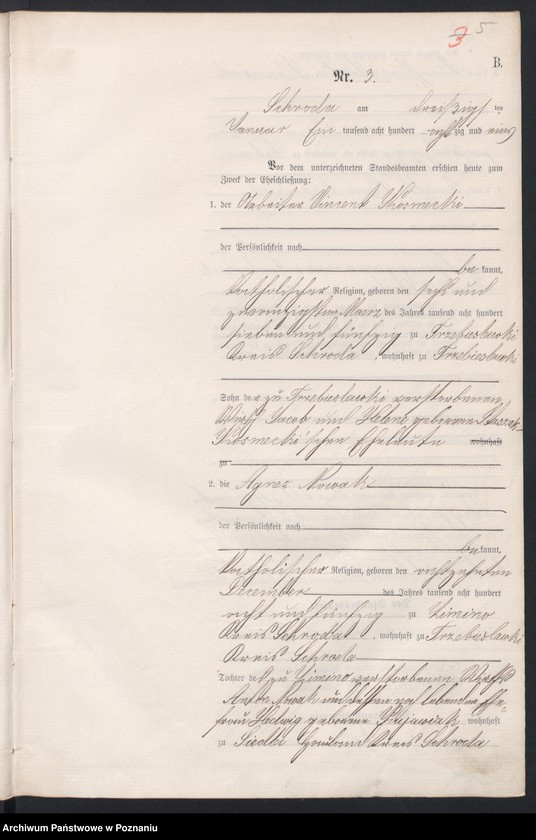 3 5
B.
Nr. 3.
Schroda am dreißigsten
Januar Ein tausend acht hundert achtzig und eins
Vor dem unterzeichneten Standesbeamten erschien heute zum
Zweck der Eheschließung:
1. der Arbeiter Vincent Kosmecki
der Persönlichkeit nach
be kannt,
katholischer Religion, geboren den sechs und
zwanzigsten Maerz des Jahres tausend acht hundert
sieben und fünfzig zu Trzebislawki
Kreis Schroda, wohnhaft zu Trzebislawki
Sohn der zu Trzebislawki verstorbenen
Wirth Jacob und Helene geborenen
Kosmecki'schen Eheleute wohnhaft
zu
2. die Agnes Nowak
der Persönlichkeit nach
be kannt,
katholischer Religion, geboren den achtzehnten
December des Jahres tausend acht hundert
acht und fünfzig zu Zimino
Kreis Schroda, wohnhaft zu Trzebislawki
Kreis Schroda
Tochter des zu Zimino verstorbenen Wirths
Anton Nowak und dessen noch lebenden Ehe-
frau Hedwig geborene wohnhaft
zu Siedlec Hauland Kreis Schroda
Archiwum Państwowe w Poznaniu